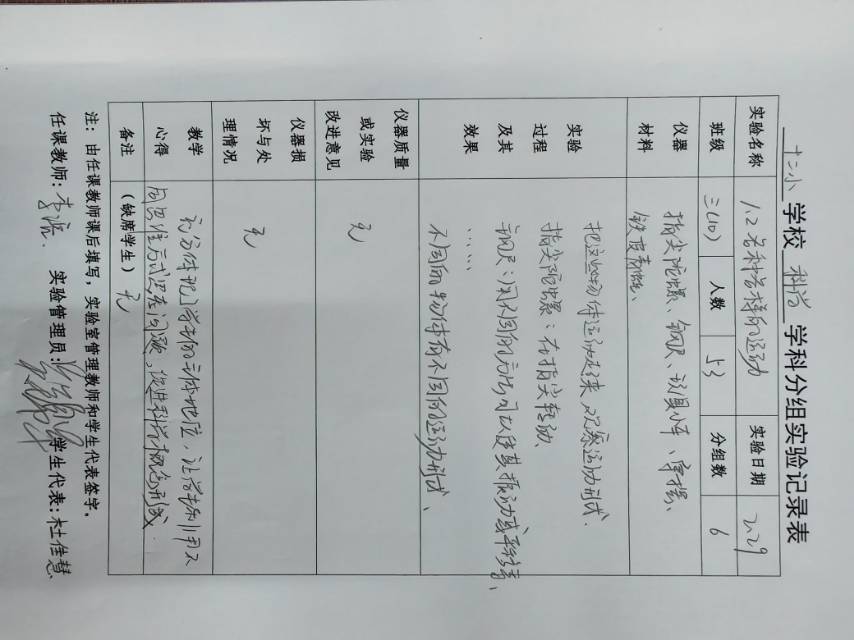 十二小学校 科学 学科分组实验记录表
实验名称 1.2各种各样的运动 实验日期 2.29
班级 三(10) 人数 53 分组数 6
仪器材料 指尖陀螺、钢尺、玩具小车、
铁皮青蛙、
实验过程及其效果 把这些物体运动起来,观察运动形式.
指尖陀螺:在指尖转动、
钢尺:用不同的方法可以使其振动或平移等、
……
不同的物体有不同的运动形式、
仪器质量或实验改进意见 无
仪器损坏与处理情况 无
教学心得 充分体现了学生的主体地位,让学生利用
方式,促进科学概念形成.
备注 (缺席学生) 无
注:由任课教师课后填写,实验室管理教师和学生代表签字。
任课教师:李 实验管理员: 学生代表:杜佳慧